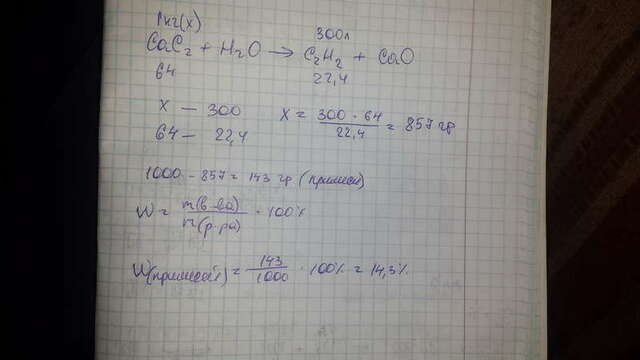 1кг(x)
300л
CaC₂ + H₂O → C₂H₂ + CaO
64 22,4
x — 300 x = 300 · 64 / 22,4 = 857 гр
64 — 22,4
1000 - 857 = 143 гр (примеси)
W = m(в-ва) / m(р-ра) · 100%
W(примесей) = 143 / 1000 · 100% = 14,3%